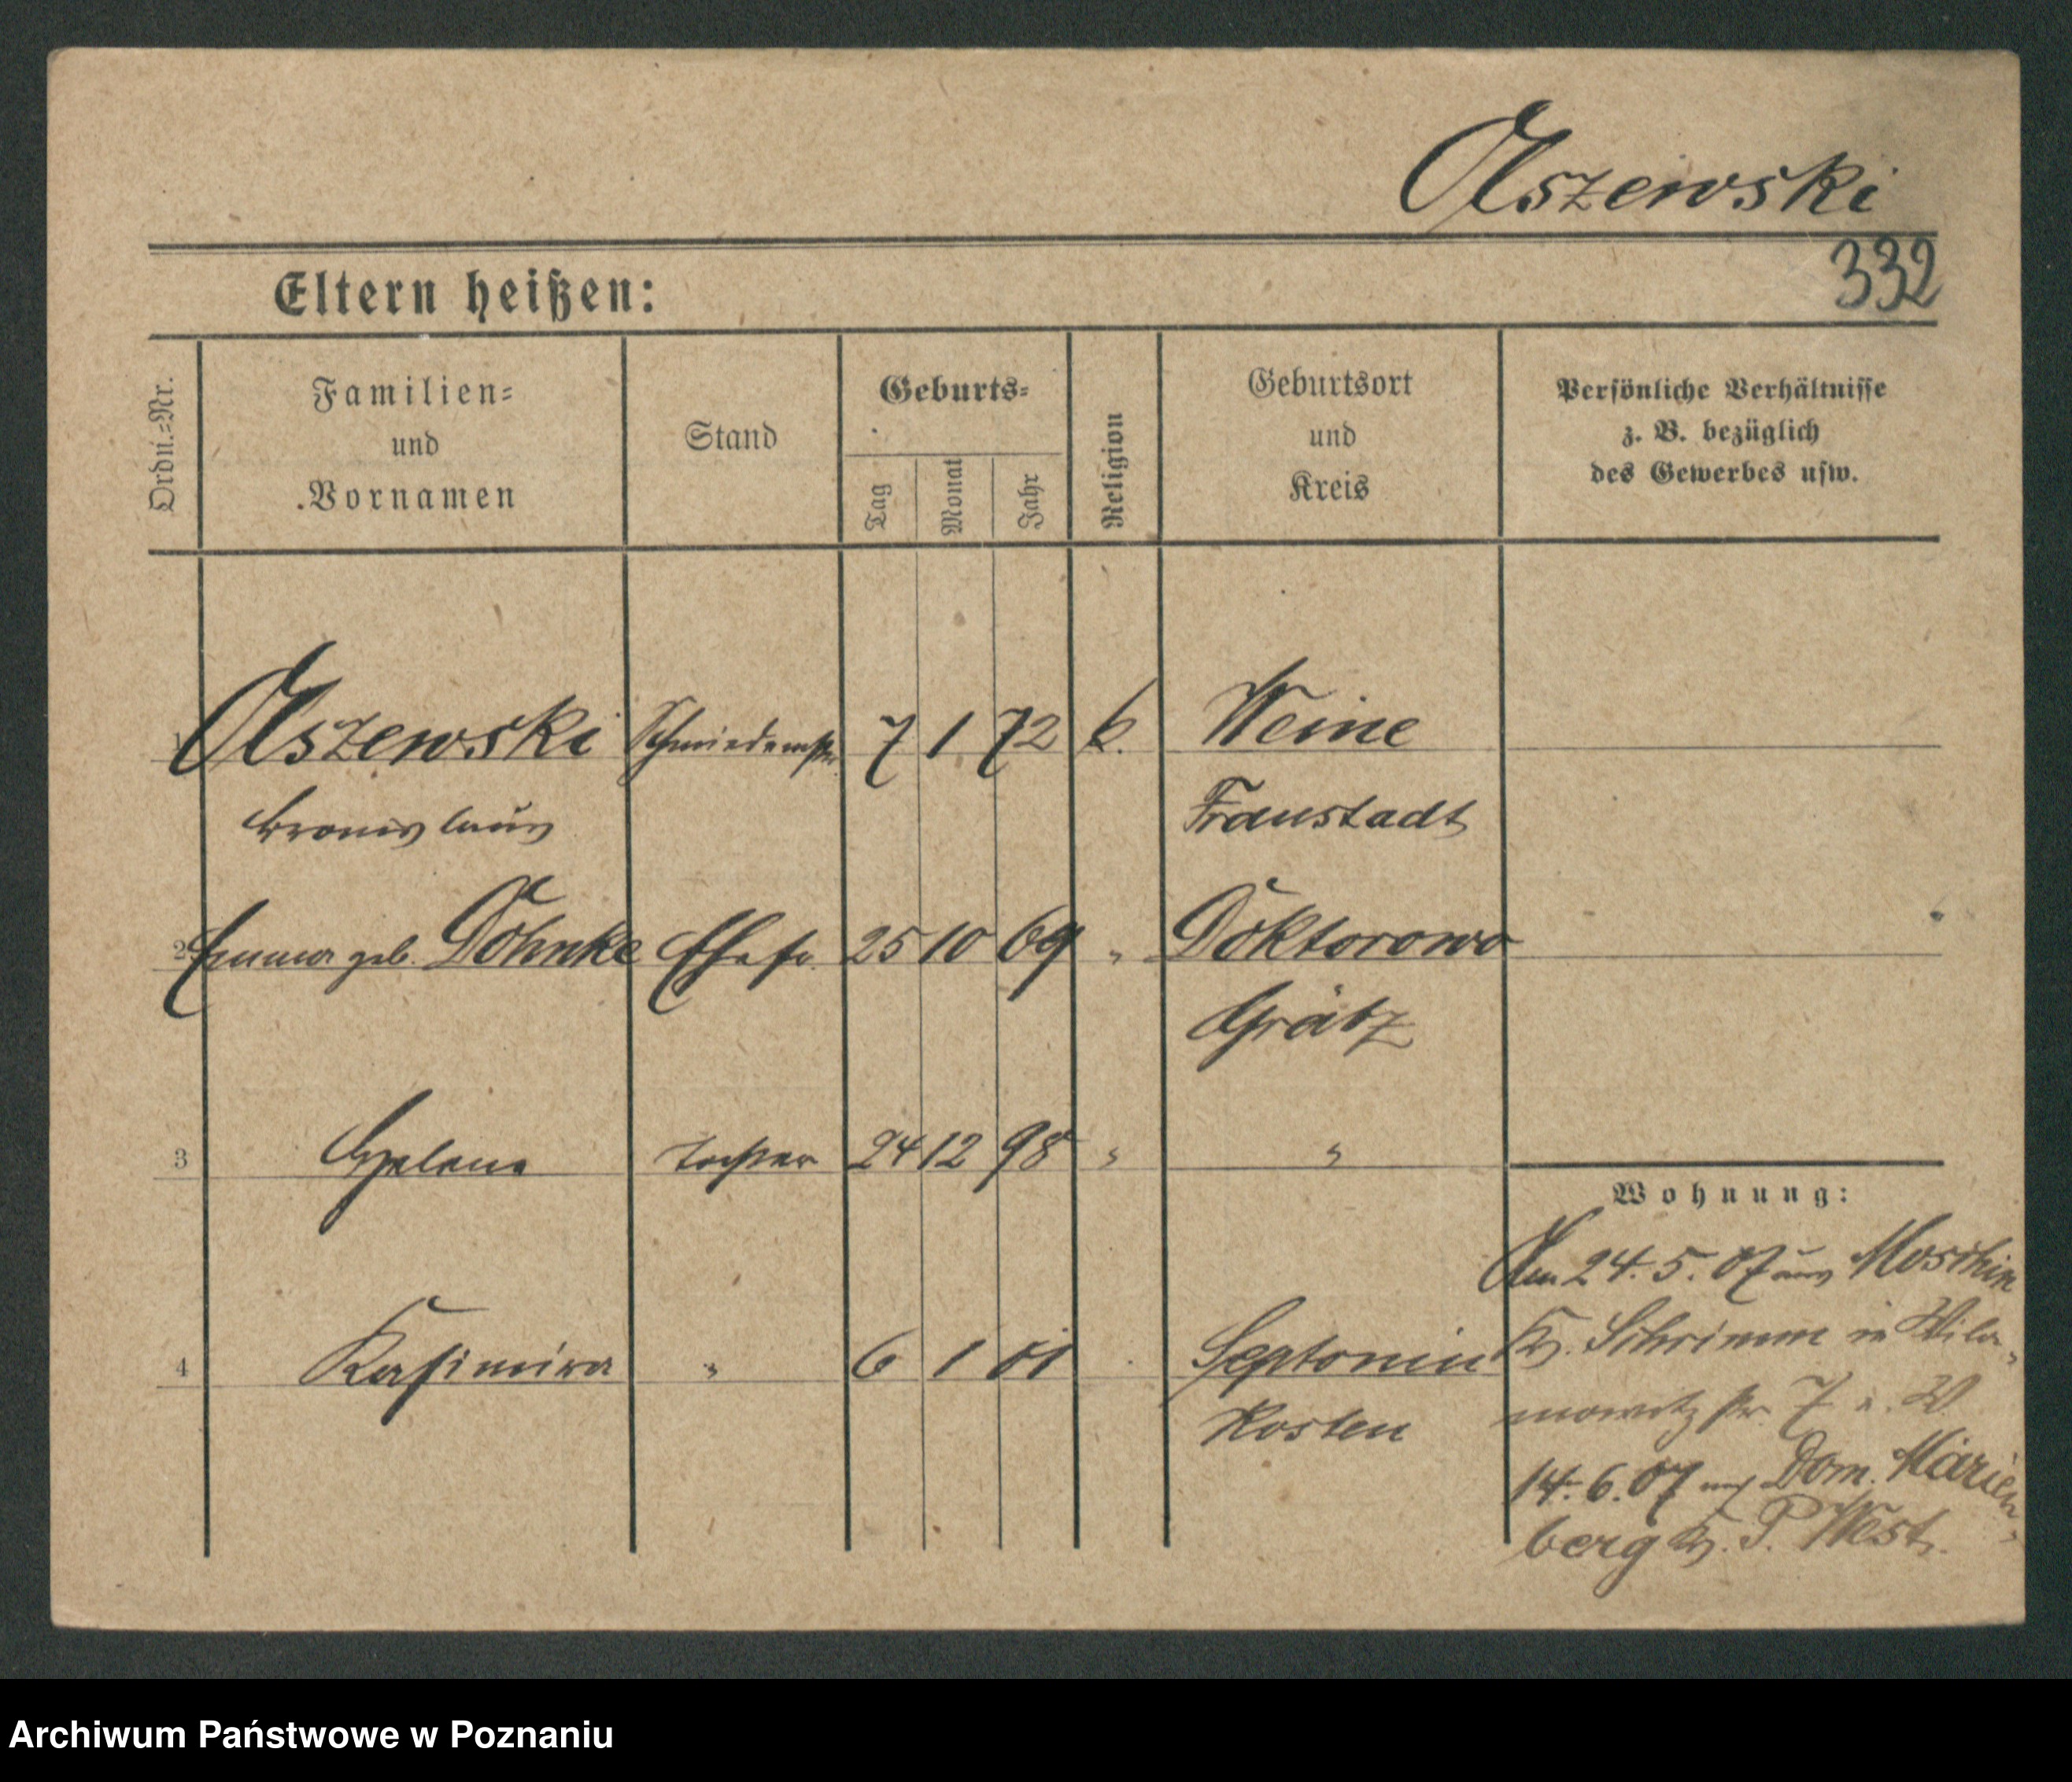 Olszewski
332
Eltern heißen:
Ordn.=Nr.
Familien=
und
Vornamen
Stand
Geburts=
Tag
Monat
Jahr
Religion
Geburtsort
und
Kreis
Persönliche Verhältnisse
z. B. bezüglich
des Gewerbes usw.
1 Olszewski Schmiedemstr. 7 1 72 k. Weine
Bronislaus Fraustadt
2 Emma geb. Döhnke Ehefr. 25 10 69 " Doktorowo
Grätz
3 Helene Tochter 24 12 98 " "
Wohnung:
Am 24. 5. 07 aus Moschin
4 Kasimira " 6 1 01 Septonin
Kr. Schrimm in Wila-
Kosten
mowitz str. 7 b. W.
14. 6. 07 nach Dom. Marien-
berg Kr. P. West.
Archiwum Państwowe w Poznaniu